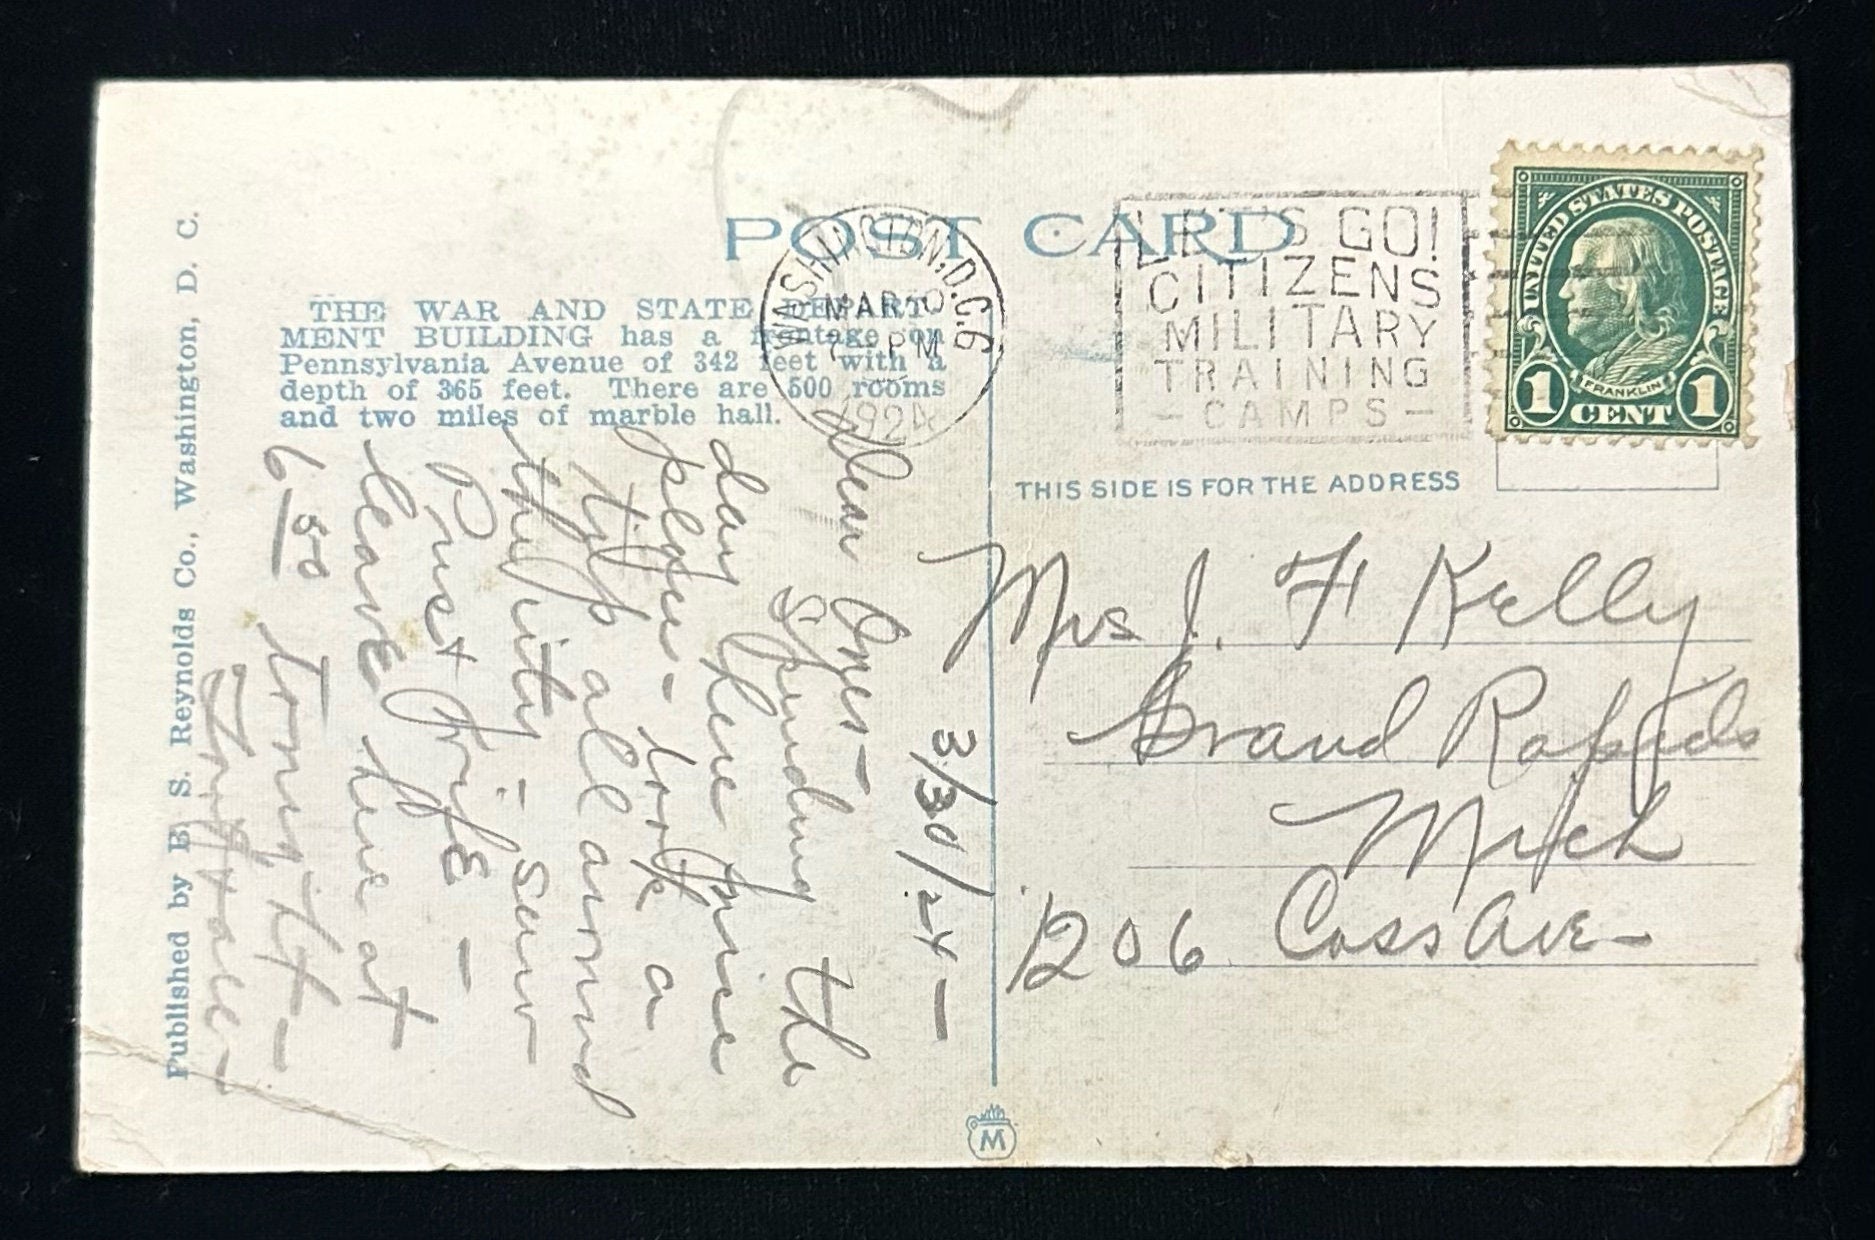 POST CARD
THE WAR AND STATE DEPART-
MENT BUILDING has a frontage on
Pennsylvania Avenue of 342 feet with a
depth of 365 feet. There are 500 rooms
and two miles of marble hall.
Published by B S. Reynolds Co., Washington, D. C.
WASHINGTON, D.C. 6
MAR 30
7 PM
1924
LET'S GO!
CITIZENS
MILITARY
TRAINING
- CAMPS -
UNITED STATES POSTAGE
FRANKLIN
1 CENT 1
THIS SIDE IS FOR THE ADDRESS
Mrs J. F Kelly
Grand Rapids
Mich
1206 Cass Ave -
3/30/24 -
Dear Ones -
Spending the
day here fine
place - took a
trip all around
the city - saw
Pres + Wife -
leave here at
6 50 tonight -
M